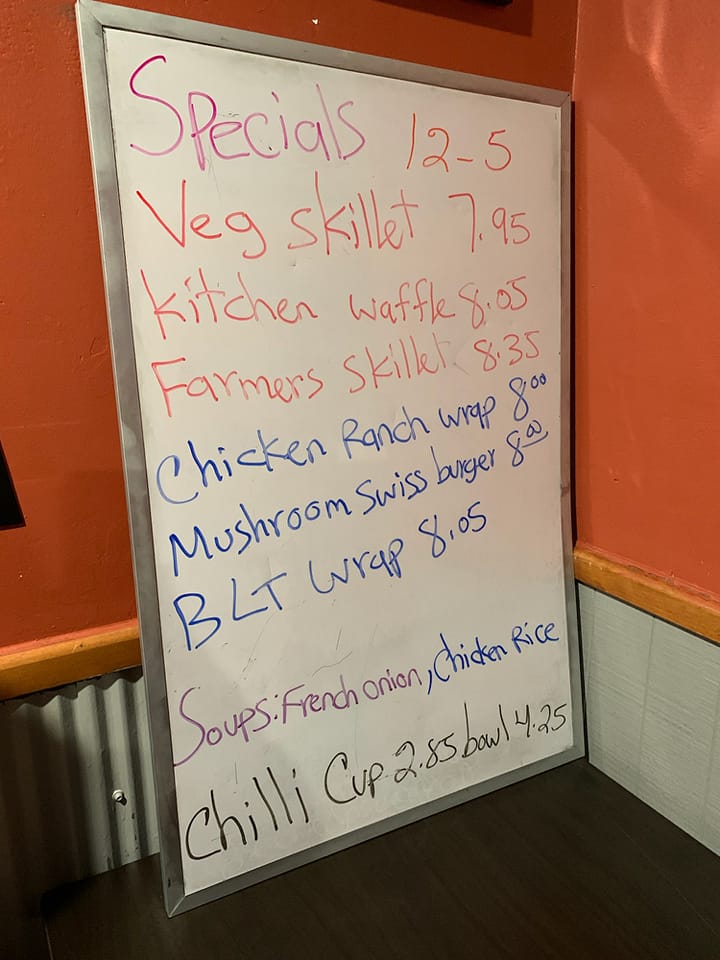 Specials 12-5
Veg skillet 7.95
kitchen waffle 8.05
Farmers skillet 8.35
Chicken Ranch wrap 8.00
Mushroom Swiss burger 8.00
BLT wrap 8.05
Soups: French onion, Chicken Rice
Chilli Cup 2.85 bowl 4.25